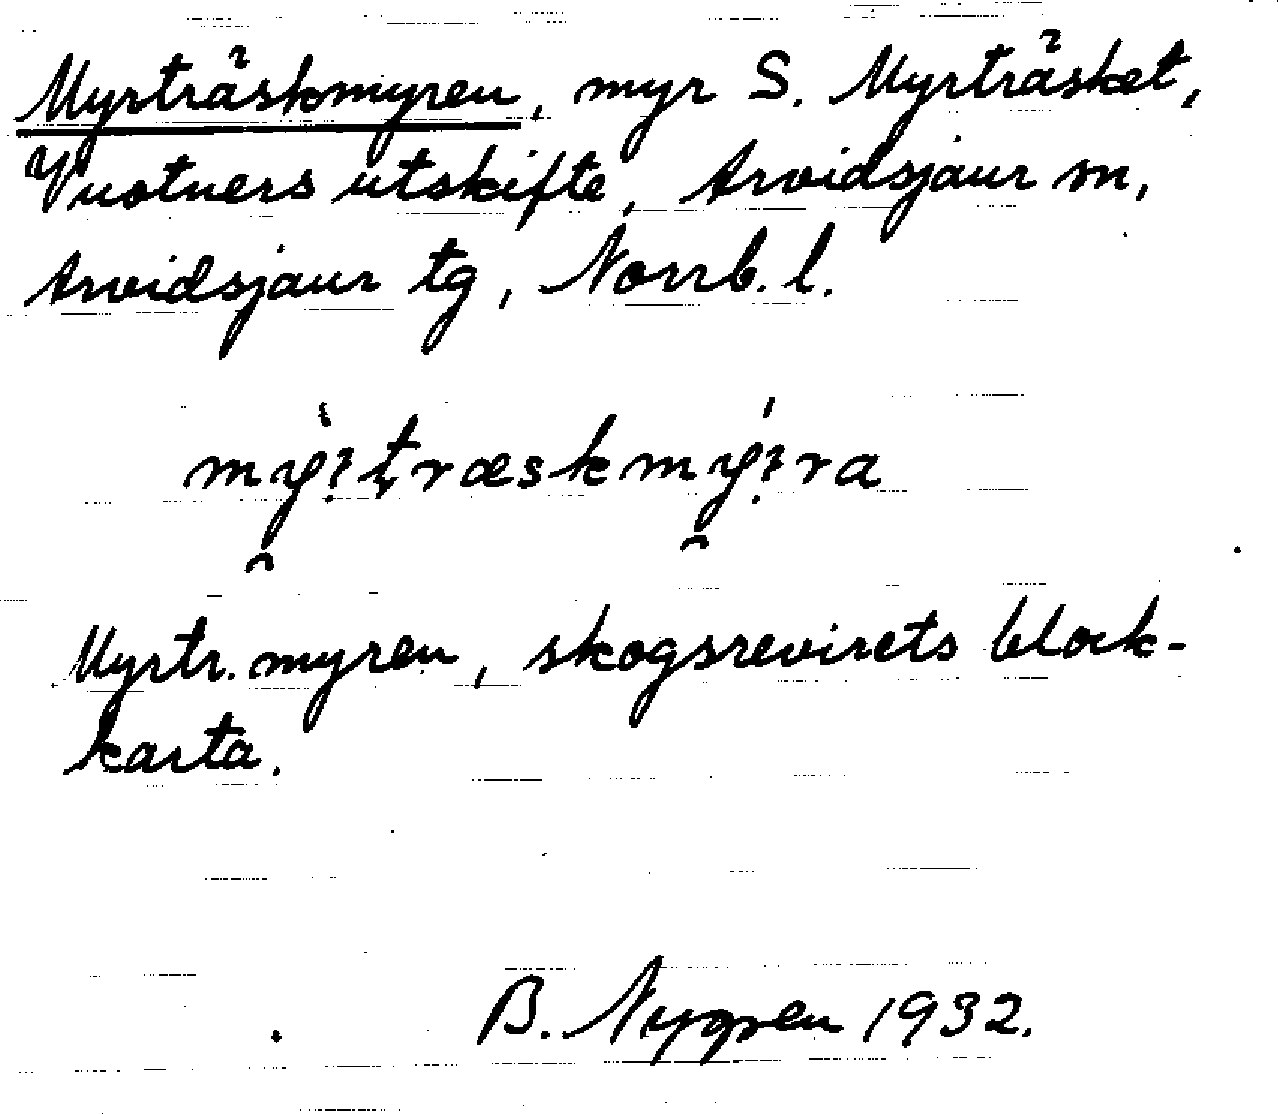 Myrträskmyren, myr S. Myrträsket,
Vuotners utskifte, Arvidsjaur sn,
Arvidsjaur tg, Norrb. l.
mỳ:træskmý:ra
Myrtr. myren, skogsrevirets block-
karta.
B. Nygren 1932.